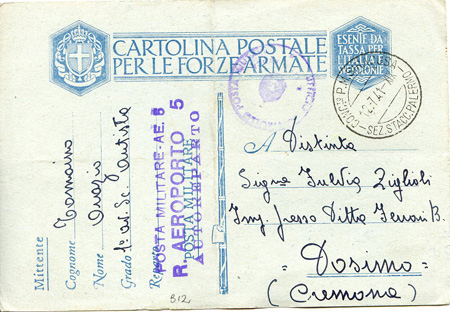 CARTOLINA POSTALE
PER LE FORZE ARMATE
ESENTE DA
TASSA PER
L'ITALIA E
COLONIE
SEZ. STACC. PALERMO
Mittente
Cognome Tomaino
Nome Orazio
Grado 1° av. Sc. Autista
Reparto
POSTA MILITARE - AE. 5
R. AEROPORTO 5
POSTA MILITARE
AUTOREPARTO
A Distinta
Sig.na Fulvia Ziglioli
Imp. presso Ditta Ferrari B.
= Dosimo =
(Cremona)
812